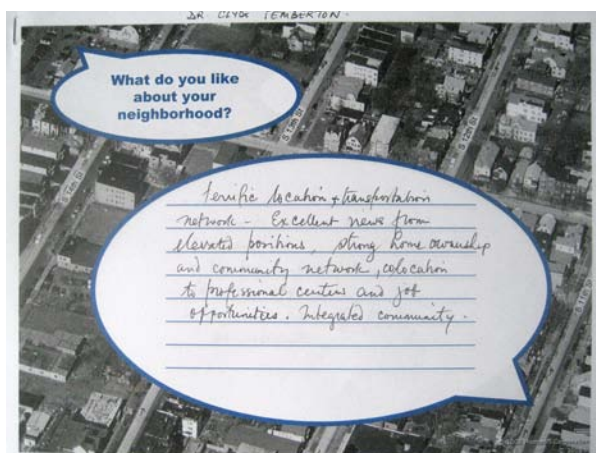 DR CLYDE TEMBERTON.
What do you like
about your
neighborhood?
S 13th St
S 12th St
S 14th St
S 11th St
terrific location + transportation
network - Excellent views from
elevated positions, strong home ownership
and community network, colocation
to professional centers and job
opportunities. Integrated community.